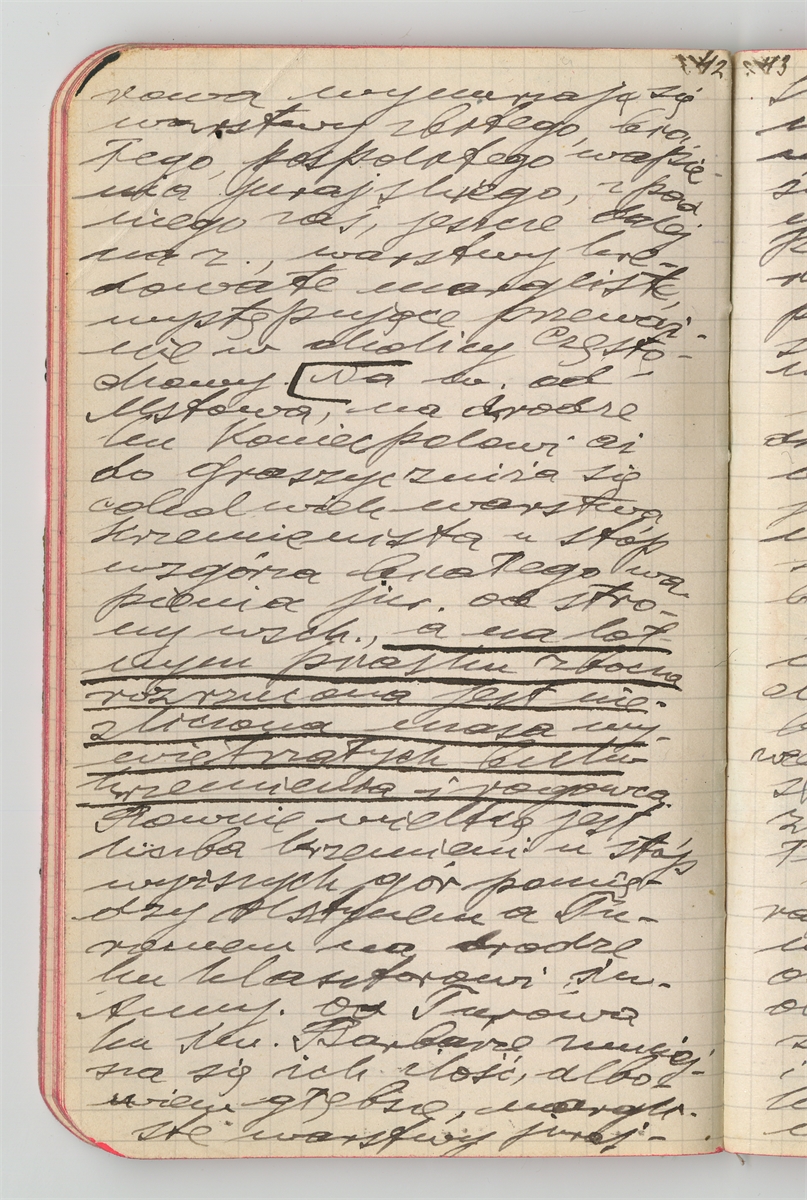 42
rowa wynurzają się
warstwy zbitego, bia-
łego, pospolitego wapie-
nia jurajskiego, z pod
niego zaś, jeszcze dalej
na z., warstwy kre-
dowate margliste,
występujące przeważ-
nie w okolicy Często-
chowy. [Na w. od
Mstowa, na drodze
ku Koniecpolowi aż
do
cokolwiek warstwa
krzemienista u stóp
wzgórza białego wa-
pienia jur. od stro-
ny wsch., a na lot-
nym piasku zbocza
rozrzucona jest nie-
zliczona masa wy-
wietrzałych brył
krzemienia i rogowca.
Równie wielką jest
liczba krzemieni u stóp
wyższych gór pomię-
dzy Olsztynem a Tu-
rowem na drodze
ku klasztorowi św.
Anny. Od Turowa
ku św. Barbarze zmniej-
sza się ich ilość, albo-
wiem głębsze, margli-
ste warstwy juraj-
43